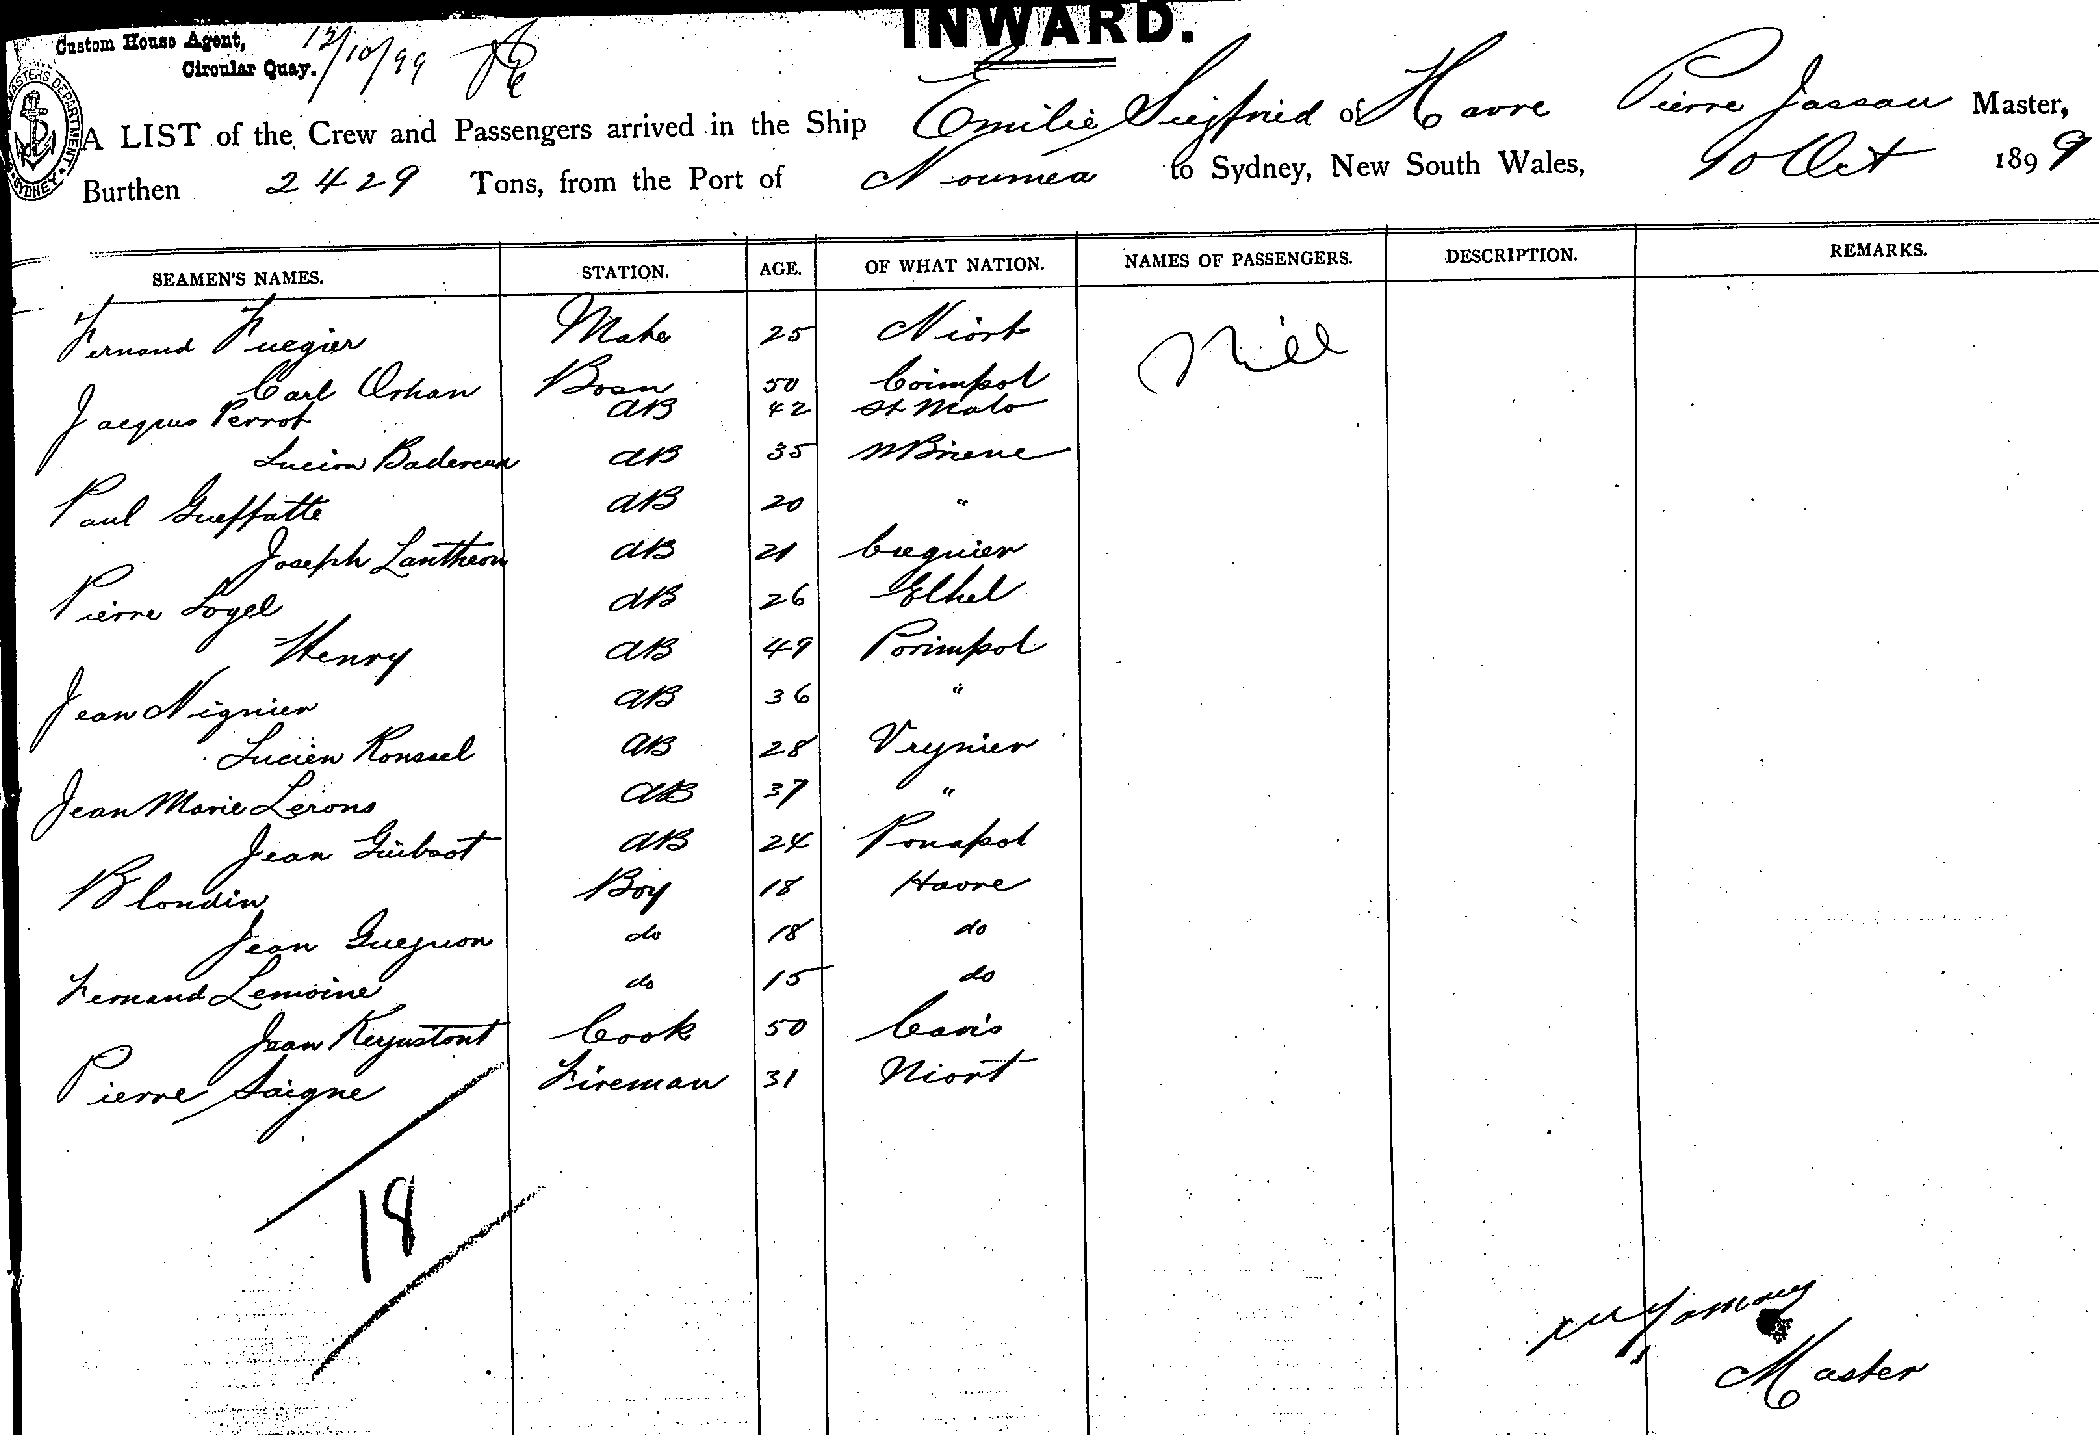 INWARD.
Custom House Agent,
Circular Quay.
12/10/99
MASTERS DEPARTMENT
SYDNEY
A LIST of the Crew and Passengers arrived in the Ship Emilie Siegfried of Havre Pierre Jassau Master,
Burthen 2429 Tons, from the Port of Noumea to Sydney, New South Wales, 10 Oct 1899
SEAMEN'S NAMES. STATION. AGE. OF WHAT NATION. NAMES OF PASSENGERS. DESCRIPTION. REMARKS.
Fernand Fuegier Mate 25 Niort Nill
Carl Orhan Bosn 50 Coimpol
Jacques Perrot AB 42 St Malo
Lucien AB 35
Paul Gueffatte AB 20 "
Joseph Lantheon AB 21
Pierre Loyel AB 26 Elhel
Henry AB 49 Porimpol
Jean Nignier AB 36 "
Lucien Roussel AB 28
Jean Marie Lerons AB 37 "
Jean AB 24
Blondin Boy 18 Havre
Jean do 18 do
Fernand Lemoine do 15 do
Jean Cook 50
Pierre Saigne Fireman 31 Niort
18
Master